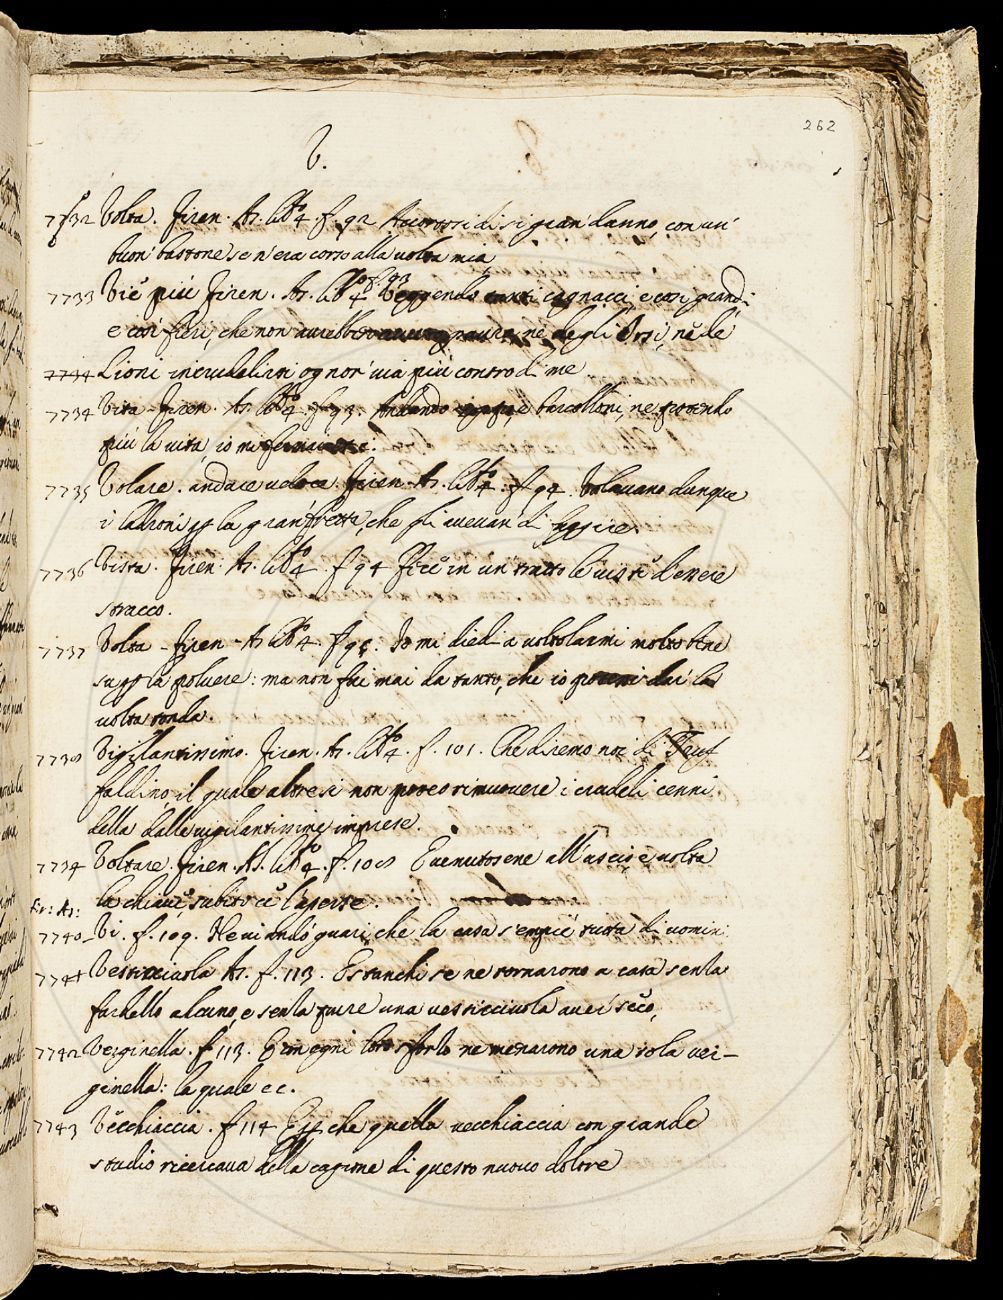 262
V.
7732 Volta. Firen. As. lib.º 4. f. 92 Accortosi di sì gran danno, con un
buon bastone se n'era corso alla volta mia
7733 Vie più Firen. As. lib.º 4 f. 93 Veggendo tanti cagnacci, e così grandi
e così fieri, che non avrebbero avuto paura, nè degli Orsi, nè de
7734 Lioni incrudelirsi ognor via più contro di me
7734 Vita. Firen. As. lib.º 4. f. 93. Andando barcolloni, ne potendo
più la vita io mi
7735 Volare. andare veloce. Firen. As. lib.º 4. f. 94. Volavano dunque
i ladroni per la gran fretta, che gli avevan di fuggire.
7736 Vista. Firen. As. lib.º 4. f 94 Fece in un tratto le viste d'essere
stracco.
7737 Volta. Firen. As. lib.º 4. f 95. Io mi diedi a voltolarmi molto bene
su per la polvere: ma non fui mai da tanto, che io potessi dar la
volta tonda.
7738 Vigilantissimo. Firen. As. lib.º 4. f. 101. Che diremo noi di
il quale altresì non poteo rimuovere i crudeli cenni
della dalle vigilantissime imprese.
7739 Voltare. Firen. As. lib.º 4. f. 108 E venutosene all'uscio e volta
la chiave, subito ce l'aperse.
Fir: As:
7740 Vi. f. 109. Ne vi andò guari, che la casa s'empiè tutta di uomini
7741 Vesticciuola As. f. 113. E stanchi se ne tornarono a casa senza
fardello alcuno, e senza pure una vesticciuola aver seco,
7742 Verginella. f. 113. E con ogni loro sforzo ne menarono una sola ver-
ginella: la quale ec.
7743 Vecchiaccia. f 114 che quella vecchiaccia con grande
studio ricercava della cagione di questo nuovo dolore